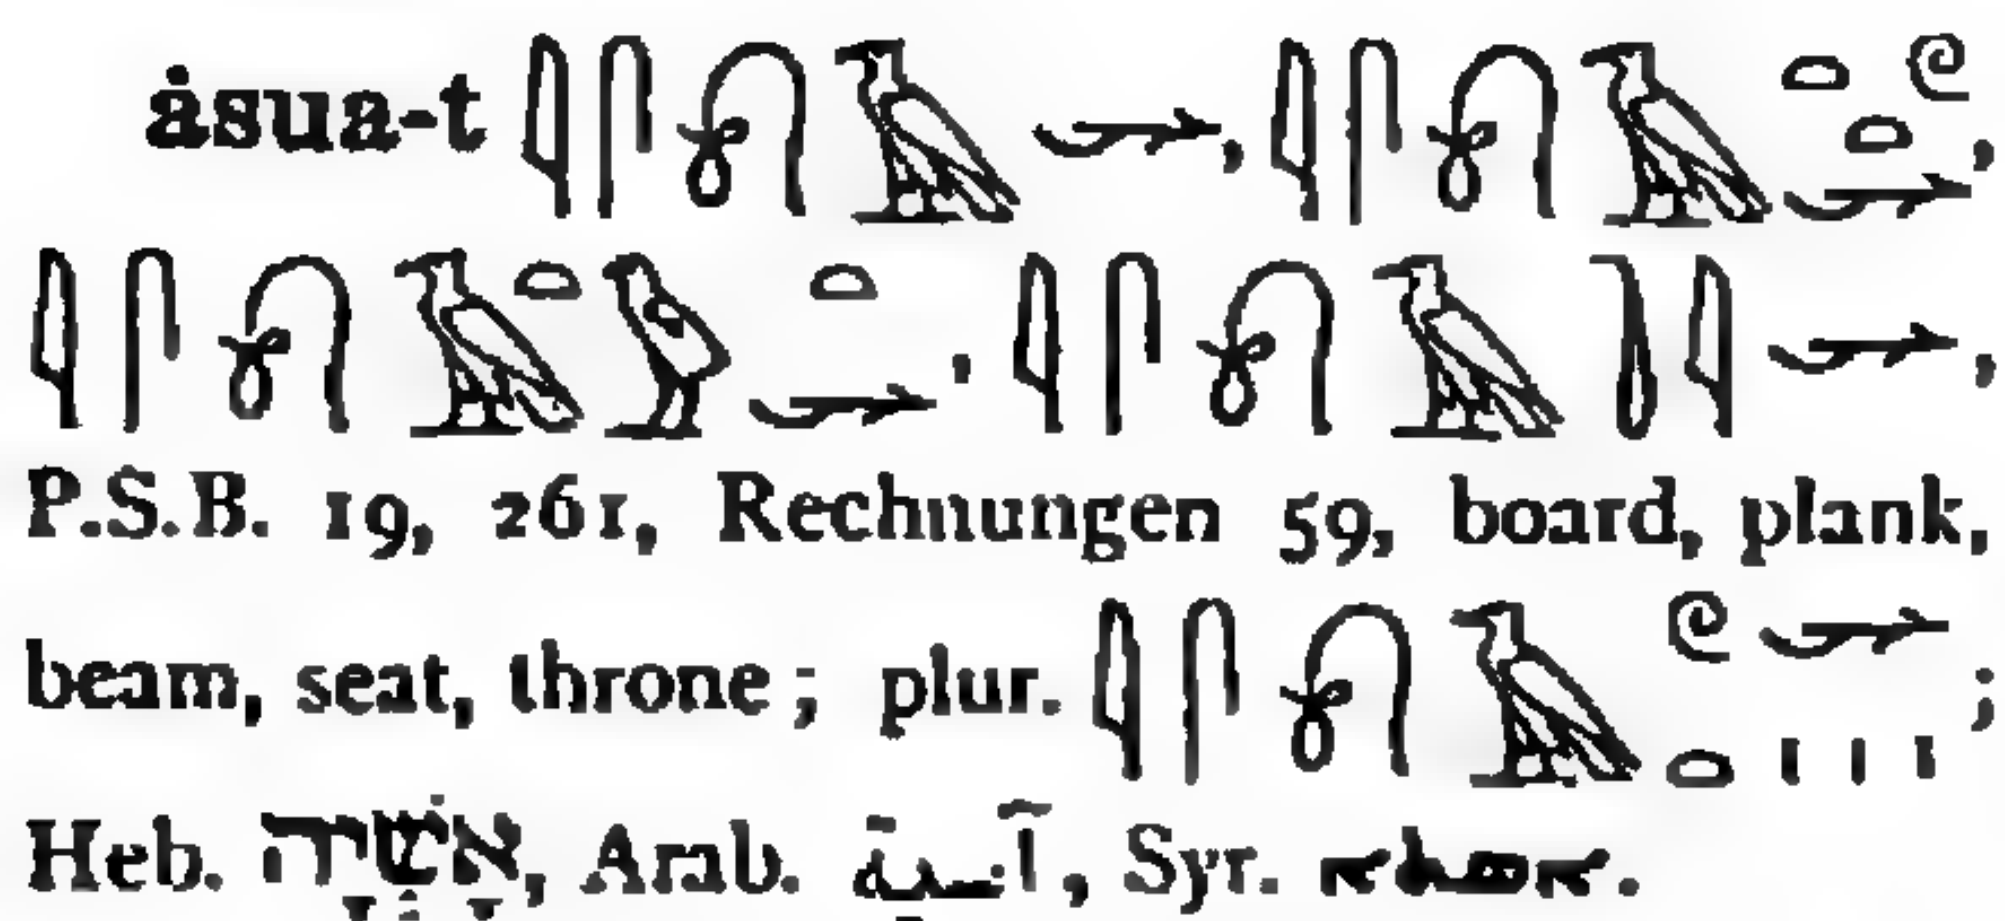 ȧsua-t 𓇋𓋴𓍯𓄿𓆱, 𓇋𓋴𓍯𓄿𓏏𓏲𓏏𓆱,
𓇋𓋴𓍯𓄿𓏏𓅱𓏏𓆱, 𓇋𓋴𓍯𓄿𓍘𓇋𓆱,
P.S.B. 19, 261, Rechnungen 59, board, plank,
beam, seat, throne; plur. 𓇋𓋴𓍯𓄿𓏲𓏏𓆱𓏥;
Heb. אָשְׁיָה, Arab. آسية, Syr.